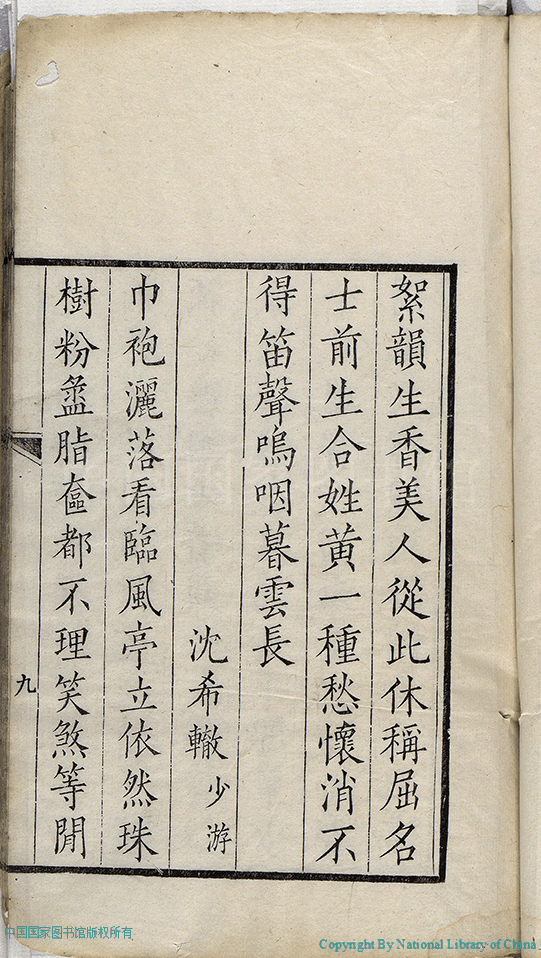 絮韻生香美人從此休稱屈名
士前生合姓黃一種愁懷消不
得笛聲嗚咽暮雲長
沈希轍少游
巾袍灑落看臨風亭立依然珠
樹粉盝脂奩都不理笑煞等閒
九
中国国家图书馆版权所有
Copyright By National Library of China